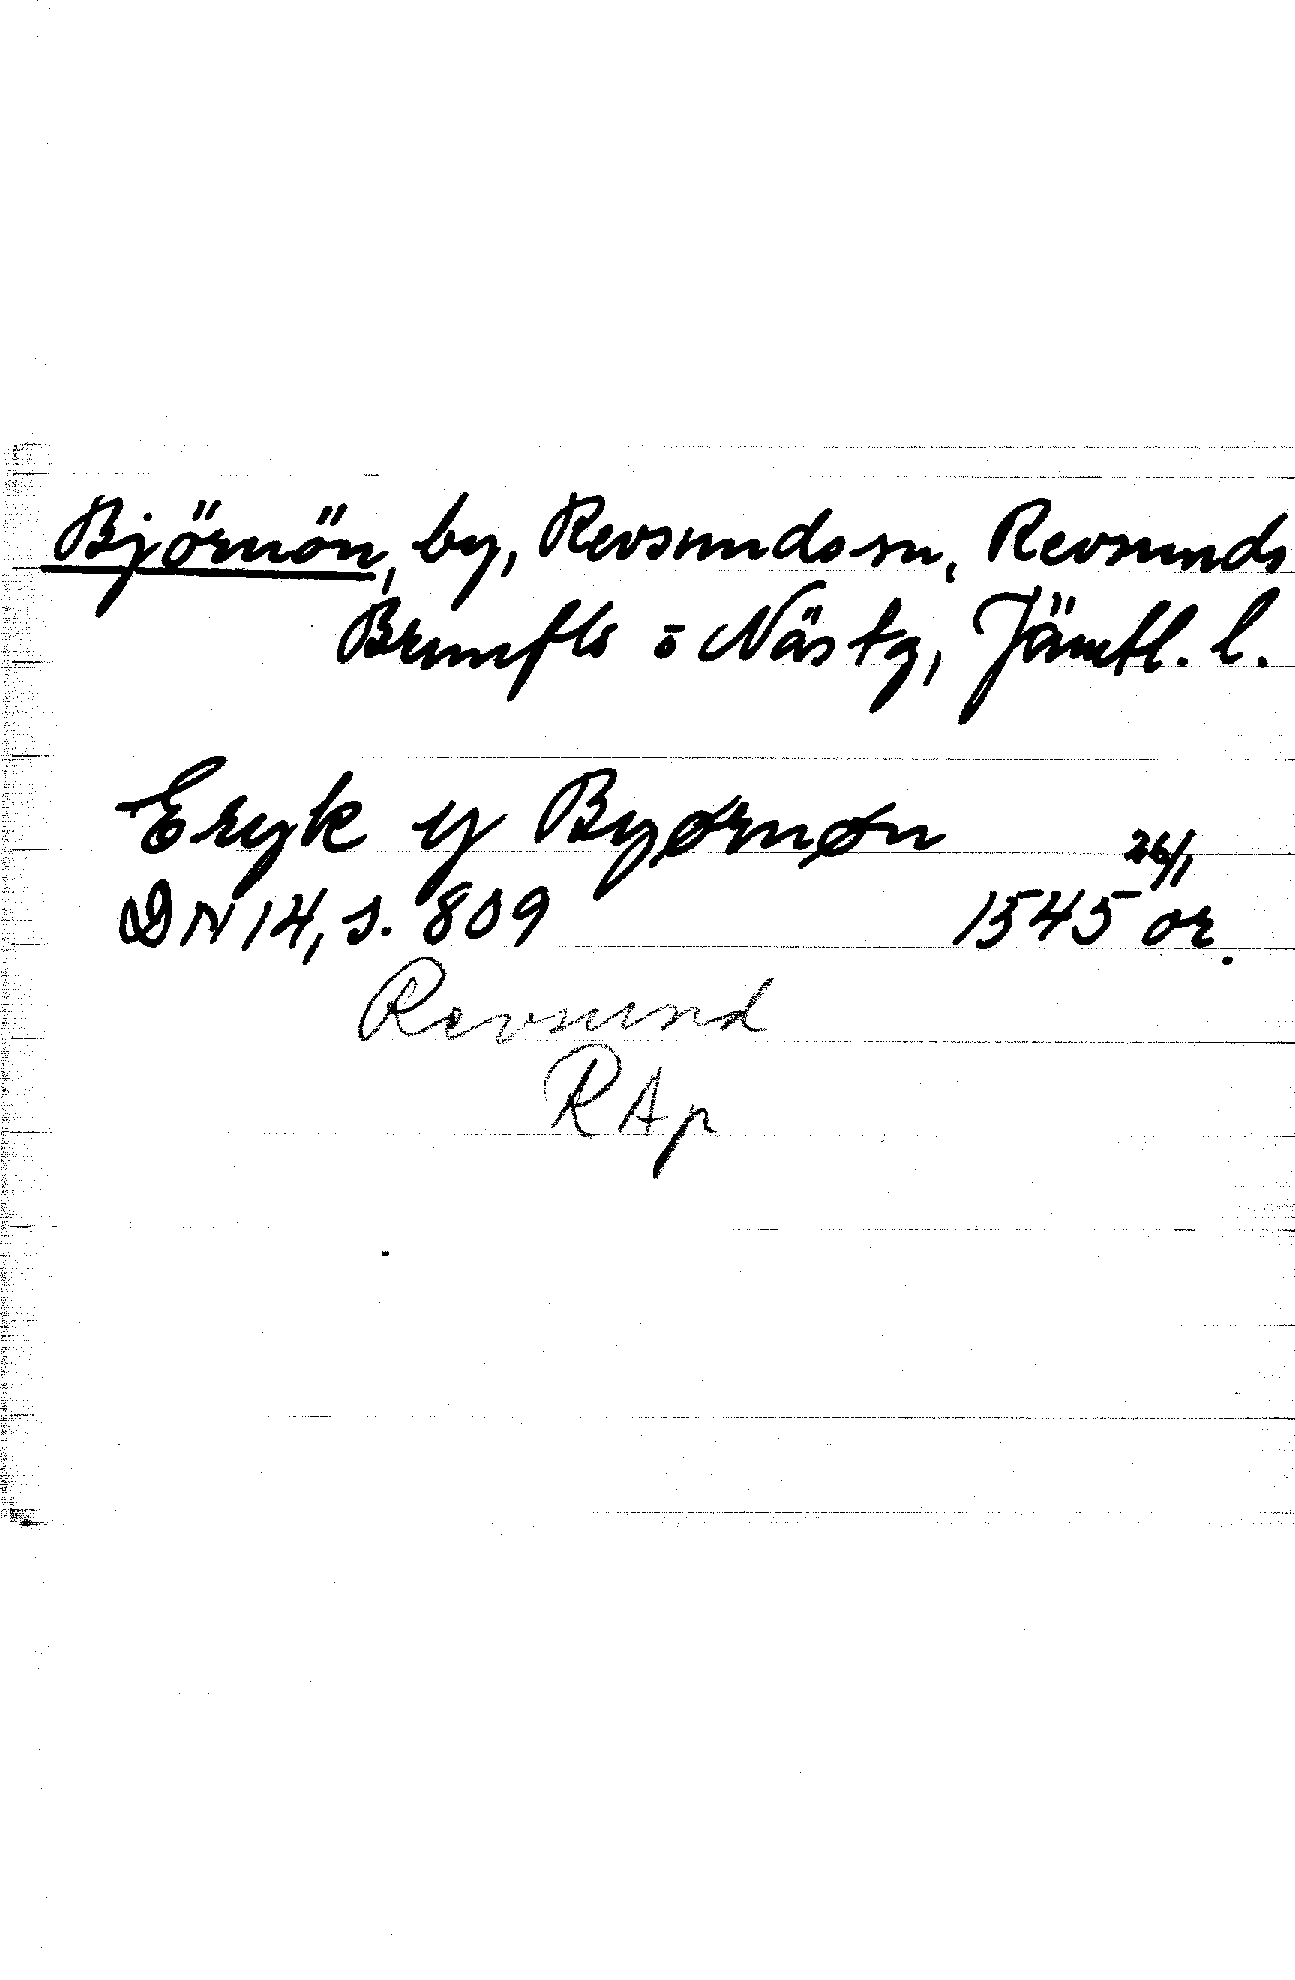 Björnön, by, Revsunds sn, Revsunds
Brunflo o Näs tg, Jämtl. l.
Eryk y Byørnøn
26/1
DN 14, s. 809 1545 or.
Revsund
RAp